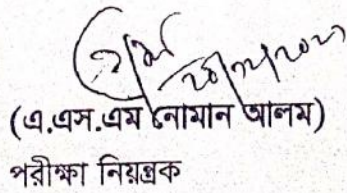 (এ.এস.এম নোমান আলম)
পরীক্ষা নিয়ন্ত্রক